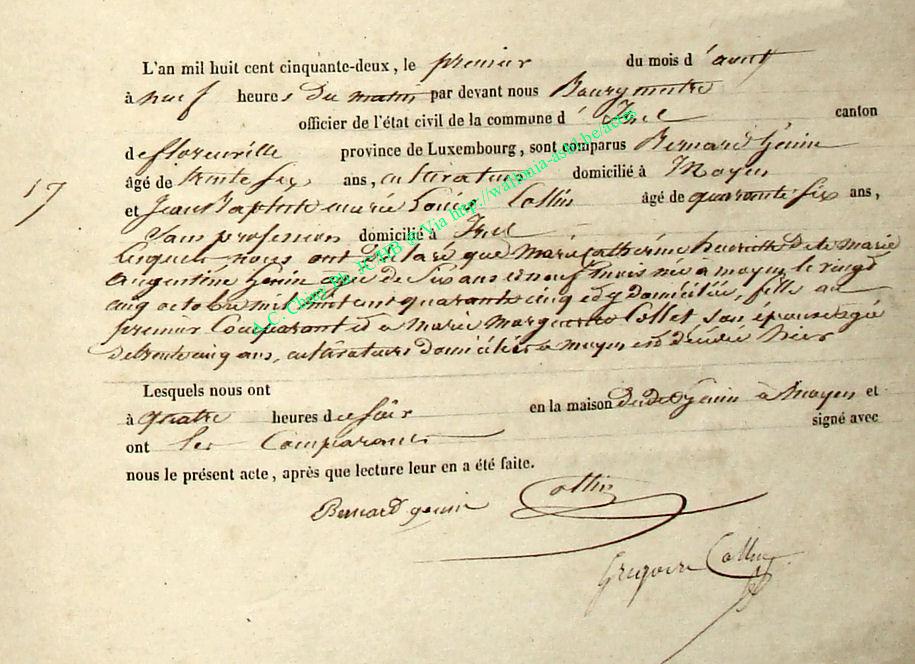 L'an mil huit cent cinquante-deux, le premier du mois d'avril
à neuf heures du matin par devant nous Bourgmestre
officier de l'état civil de la commune d'Izel canton
de florenville province de Luxembourg, sont comparus Bernard Génin
17 âgé de trente six ans, cultivateur domicilié à Moyen
et Jean Baptiste marie Louis Collin âgé de quarante six ans,
sans profession domicilié à Izel
Lesquels nous ont déclaré que marie catherine henriette marie
augustine Génin agée de six ans et neuf mois née à moyen le vingt
cinq octobre mil huit cent quarante cinq et y domiciliée, fille au
premier Comparant et a marie marguerite Collet son épouse agée
de trente cinq ans, cultivateurs domiciliés a moyen est décédée hier
Lesquels nous ont
à quatre heures de soir en la maison dudit génin à Moyen et
ont les Comparants signé avec
nous le présent acte, après que lecture leur en a été faite.
Bernard genin Collin
Gregoire Collin
A.C. Via http://wallonia-asbl.be/actes